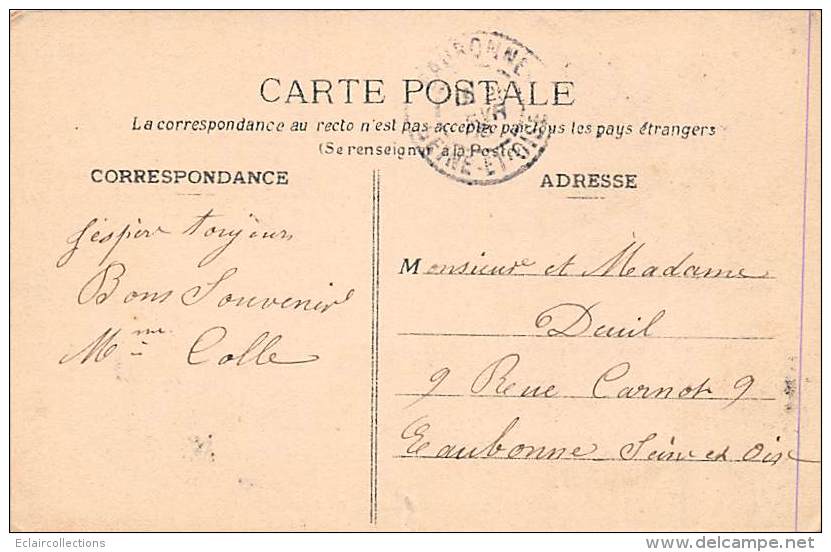 CARTE POSTALE
La correspondance au recto n'est pas acceptée par tous les pays étrangers
(Se renseigner à la Poste)
EAUBONNE
SEINE-ET-OISE
CORRESPONDANCE
J'espère toujours
Bons Souvenirs
Mme Colle
ADRESSE
Monsieur et Madame
Deuil
9 Rue Carnot 9
Eaubonne Seine et Oise
Eclaircollections
delcampe.net